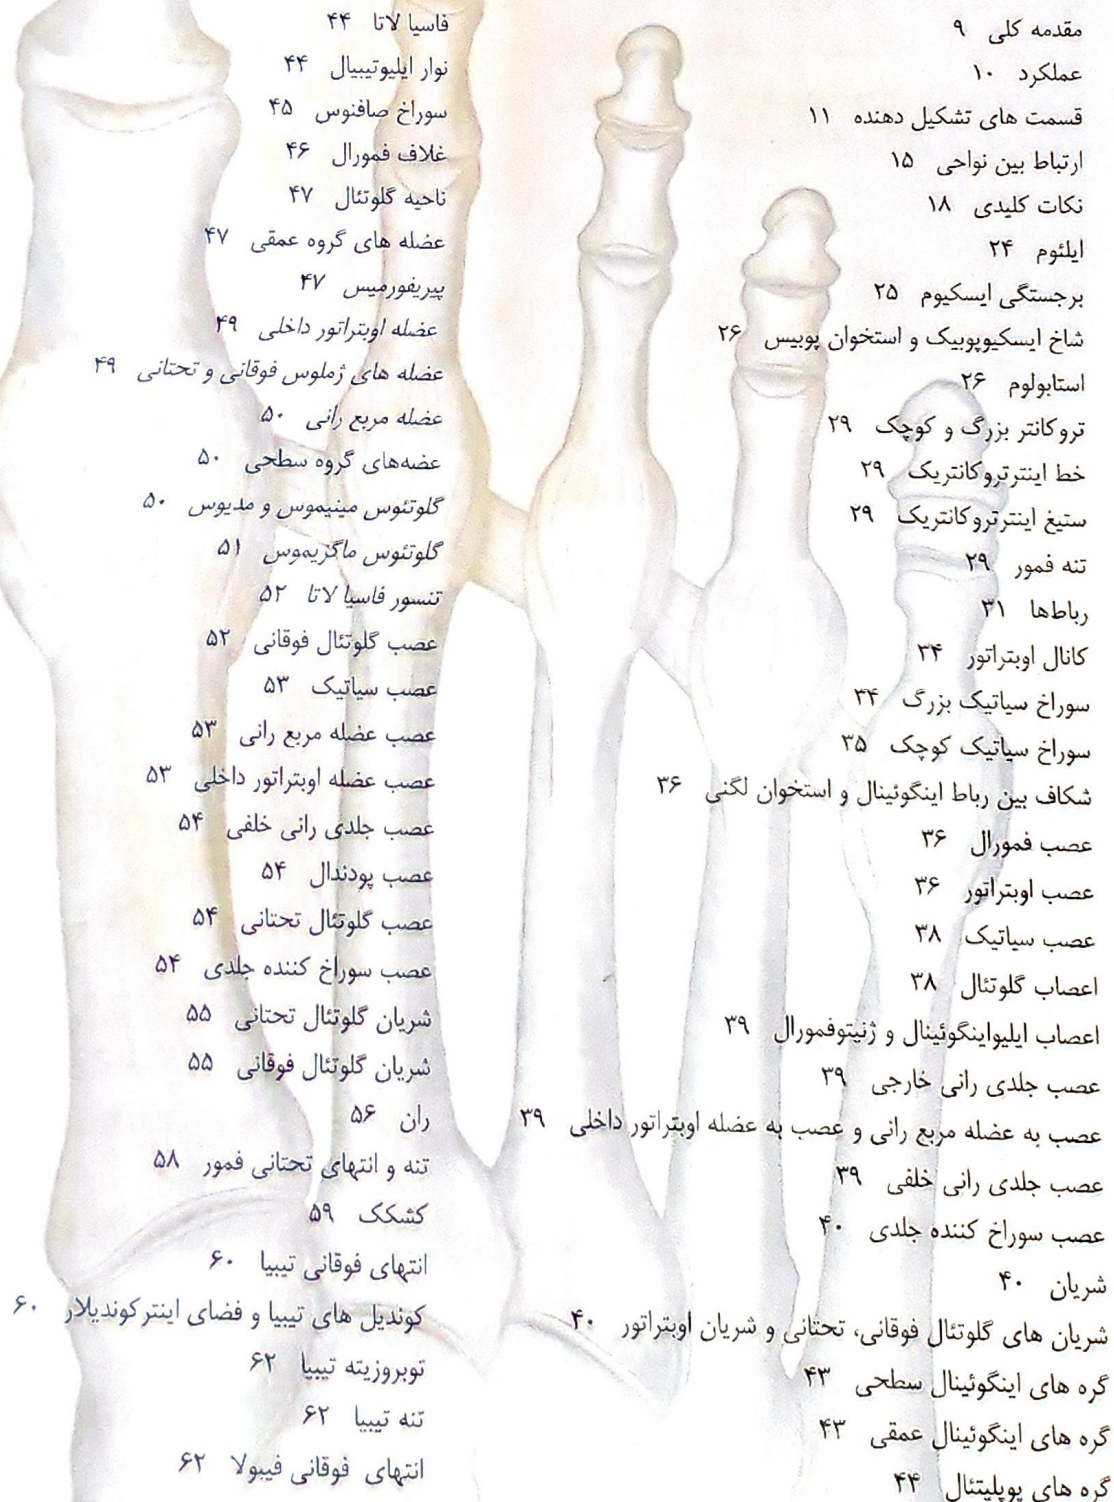 مقدمه کلی ۹
عملکرد ۱۰
قسمت های تشکیل دهنده ۱۱
ارتباط بین نواحی ۱۵
نکات کلیدی ۱۸
ایلئوم ۲۴
برجستگی ایسکیوم ۲۵
شاخ ایسکیوپوبیک و استخوان پوبیس ۲۶
استابولوم ۲۶
تروکانتر بزرگ و کوچک ۲۹
خط اینترتروکانتریک ۲۹
ستیغ اینترتروکانتریک ۲۹
تنه فمور ۲۹
رباط‌ها ۳۱
کانال اوبتراتور ۳۴
سوراخ سیاتیک بزرگ ۳۴
سوراخ سیاتیک کوچک ۳۵
شکاف بین رباط اینگوئینال و استخوان لگنی ۳۶
عصب فمورال ۳۶
عصب اوبتراتور ۳۶
عصب سیاتیک ۳۸
اعصاب گلوتئال ۳۸
اعصاب ایلیواینگوئینال و ژنیتوفمورال ۳۹
عصب جلدی رانی خارجی ۳۹
عصب به عضله مربع رانی و عصب به عضله اوبتراتور داخلی ۳۹
عصب جلدی رانی خلفی ۳۹
عصب سوراخ کننده جلدی ۴۰
شریان ۴۰
شریان های گلوتئال فوقانی، تحتانی و شریان اوبتراتور ۴۰
گره های اینگوئینال سطحی ۴۳
گره های اینگوئینال عمقی ۴۳
گره های پوپلیتئال ۴۴
فاسیا لاتا ۴۴
نوار ایلیوتیبیال ۴۴
سوراخ صافنوس ۴۵
غلاف فمورال ۴۶
ناحیه گلوتئال ۴۷
عضله های گروه عمقی ۴۷
پیریفورمیس ۴۷
عضله اوبتراتور داخلی ۴۹
عضله های ژملوس فوقانی و تحتانی ۴۹
عضله مربع رانی ۵۰
عضه‌های گروه سطحی ۵۰
گلوتئوس مینیموس و مدیوس ۵۰
گلوتئوس ماگزیموس ۵۱
تنسور فاسیا لاتا ۵۲
عصب گلوتئال فوقانی ۵۲
عصب سیاتیک ۵۳
عصب عضله مربع رانی ۵۳
عصب عضله اوبتراتور داخلی ۵۳
عصب جلدی رانی خلفی ۵۴
عصب پودندال ۵۴
عصب گلوتئال تحتانی ۵۴
عصب سوراخ کننده جلدی ۵۴
شریان گلوتئال تحتانی ۵۵
شریان گلوتئال فوقانی ۵۵
ران ۵۶
تنه و انتهای تحتانی فمور ۵۸
کشکک ۵۹
انتهای فوقانی تیبیا ۶۰
کوندیل های تیبیا و فضای اینترکوندیلار ۶۰
توبروزیته تیبیا ۶۲
تنه تیبیا ۶۲
انتهای فوقانی فیبولا ۶۲